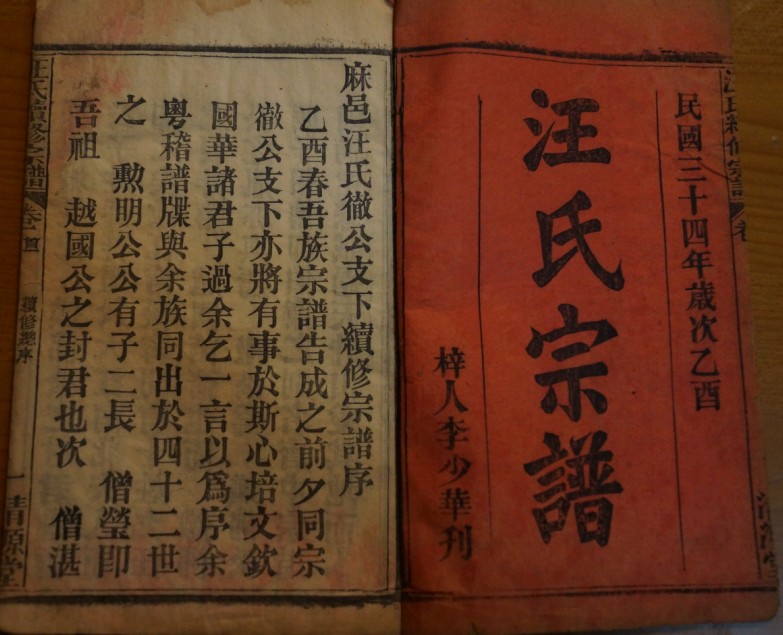 民國三十四年歲次乙酉
汪氏宗譜
梓人李少華刊
麻邑汪氏徹公支下續修宗譜序
乙酉春吾族宗譜告成之前夕同宗
徹公支下亦將有事於斯心培文欽
國華諸君子過余乞一言以爲序余
粵稽譜牒與余族同出於四十二世
之 勲明公公有子二長 僧瑩即
吾祖 越國公之封君也次 僧湛
汪氏續修宗譜
卷首
續修總序
一
清源堂